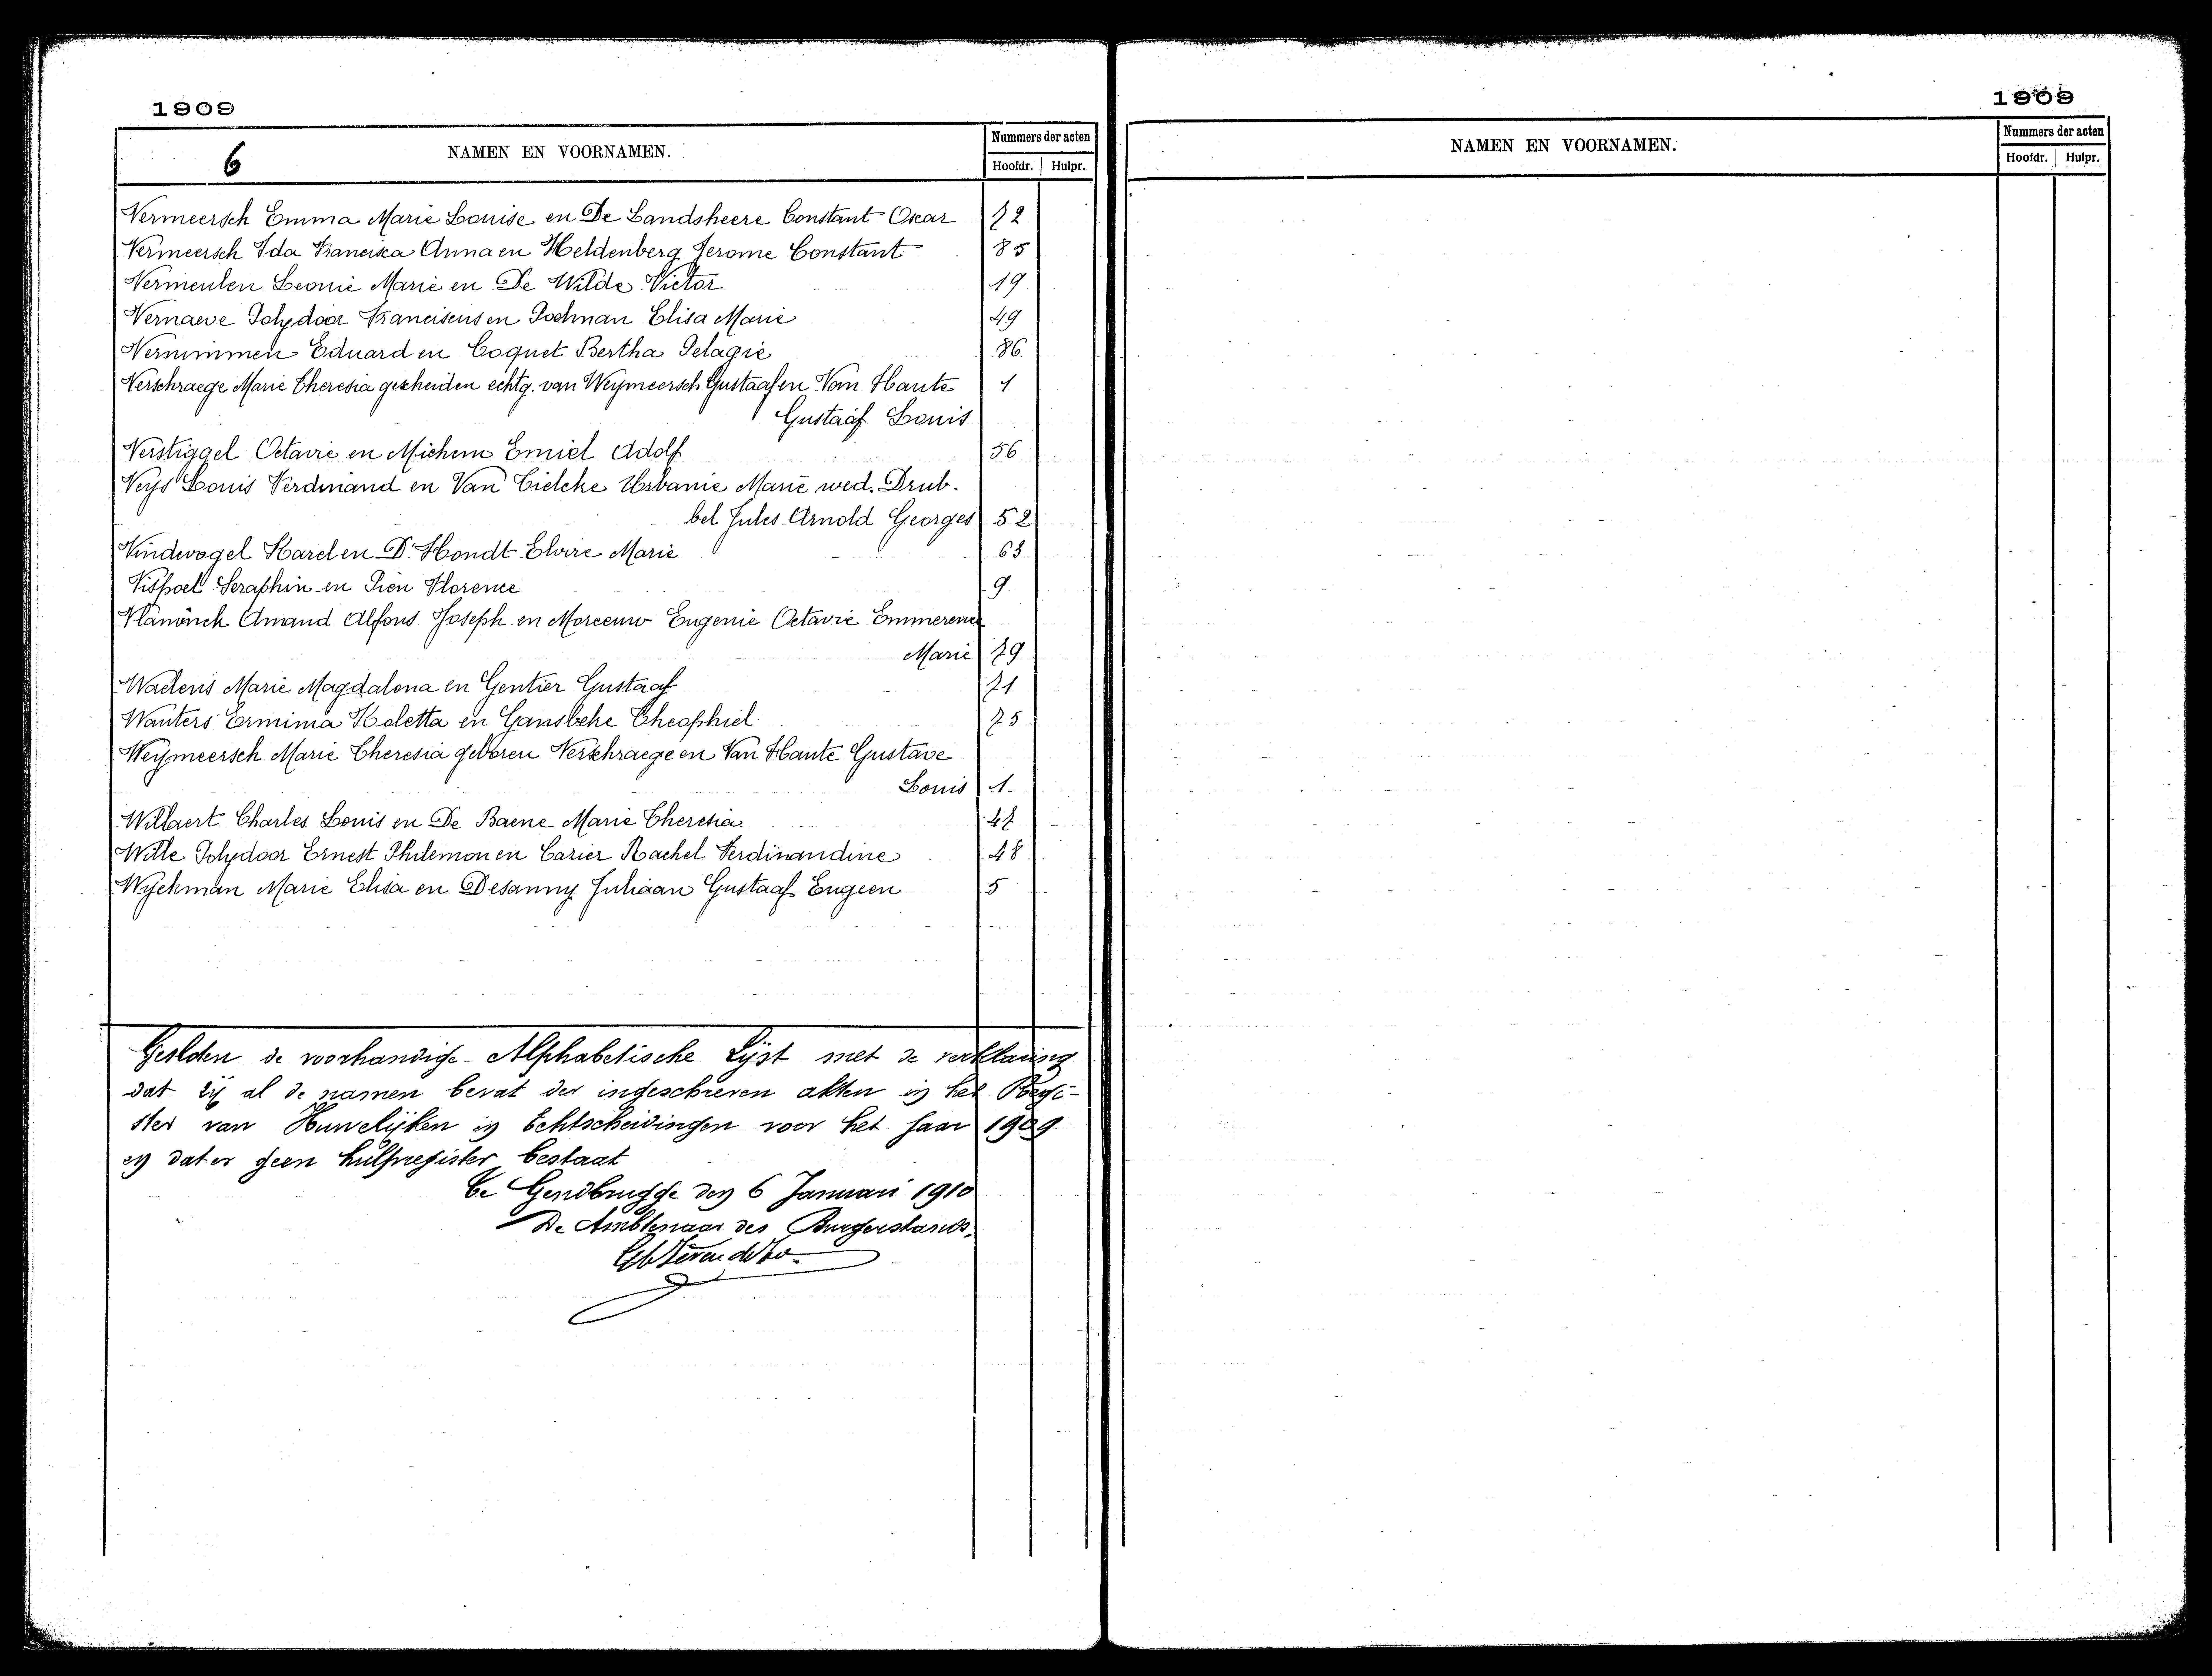 1909
6
NAMEN EN VOORNAMEN.
Nummers der acten
Hoofdr. Hulpr.
Vermeersch Emma Marie Louise en De Landsheere Constant Oscar 72
Vermeersch Ida Francisca Anna en Heldenberg Jerome Constant 85
Vermeulen Leonie Marie en De Wilde Victor 19
Vernaeve Polydoor Franciscus en Poelman Elisa Marie 49
Vernimmen Eduard en Coquet Bertha Pelagie 86
Verschraege Marie Theresia gescheiden echtg. van Weymeersch Gustaaf en Van Haute 1
Gustaaf Louis
Verstiggel Octavie en Michem Emiel Adolf 56
Veys Louis Ferdinand en Van Cielcke Urbanie Marie wed. Drub-
bel Jules Arnold Georges 52
Vindevogel Karel en D'Hondt Elvire Marie 63
Vispoel Seraphin en Pien Florence 9
Vlaminck Amand Alfons Joseph en Morceeuw Eugenie Octavie Emmerence
Marie 79
Waelens Marie Magdalena en Gentier Gustaaf 71
Wauters Ermima Koletta en Gansbeke Theophiel 75
Weymeersch Marie Theresia geboren Verschraege en Van Haute Gustave
Louis 1
Willaert Charles Louis en De Baene Marie Theresia 47
Wille Polydoor Ernest Philemon en Carier Rachel Ferdinandine 48
Wyckman Marie Elisa en Desanny Juliaan Gustaaf Eugeen 5
Gesloten de voorhandige Alphabetische Lijst met de verklaring
dat zij al de namen bevat der ingeschreven akten in het Regi-
ster van Huwelijken en Echtscheidingen voor het jaar 1909
en dat er geen hulpregister bestaat
te Gendbrugge den 6 Januari 1910
De Ambtenaar des Burgerstands,
1909
NAMEN EN VOORNAMEN.
Nummers der acten
Hoofdr. Hulpr.